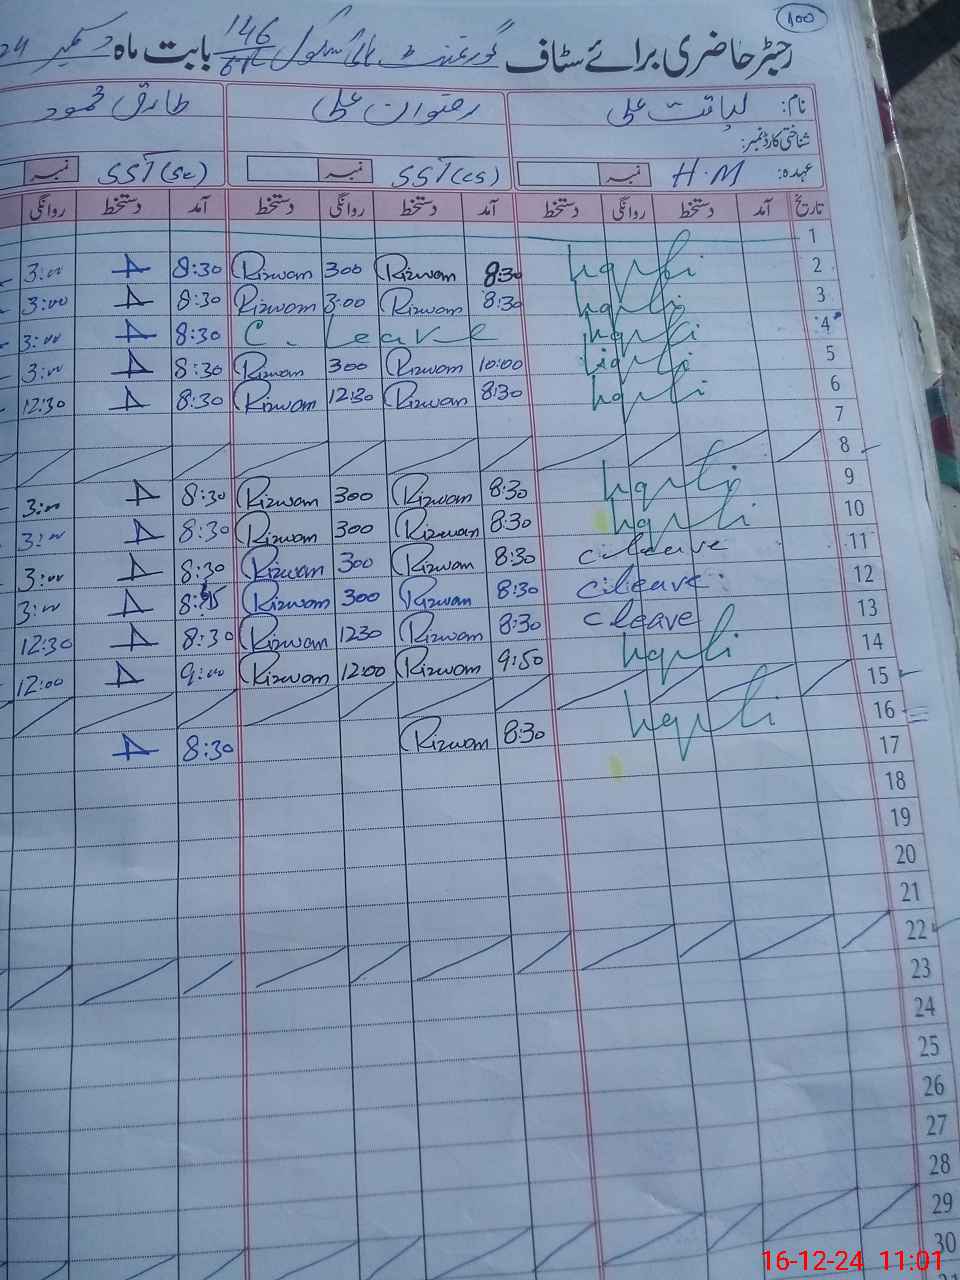 100
رجسٹر حاضری برائے سٹاف گورنمنٹ ہائی سکول 146 بابت ماہ دسمبر 24
نام: لیاقت علی رضوان علی طارق محمود
شناختی کارڈ نمبر:
عہدہ: H.M نمبر SST(CS) نمبر SST(Sc) نمبر
تاریخ آمد دستخط روانگی دستخط آمد دستخط روانگی دستخط آمد دستخط روانگی
1
2 8:30 Rizwan 300 Rizwan 8:30 3:00
3 8:30 Rizwan 3:00 Rizwan 8:30 3:00
4 C. Leave 8:30 3:00
5 10:00 Rizwan 300 Rizwan 8:30 3:00
6 8:30 Rizwan 12:30 Rizwan 8:30 12:30
7
8
9 8:30 Rizwan 300 Rizwan 8:30 3:00
10 8:30 Rizwan 300 Rizwan 8:30 3:00
11 c.leave 8:30 Rizwan 300 Rizwan 8:30 3:00
12 c.leave 8:30 Rizwan 300 Rizwan 3:00
13 c leave 8:30 Rizwan 1230 Rizwan 8:30 12:30
14 9:50 Rizwan 12:00 Rizwan 9:00 12:00
15
16 8:30 Rizwan 8:30
17
18
19
20
21
22
23
24
25
26
27
28
29
30
16-12-24 11:01